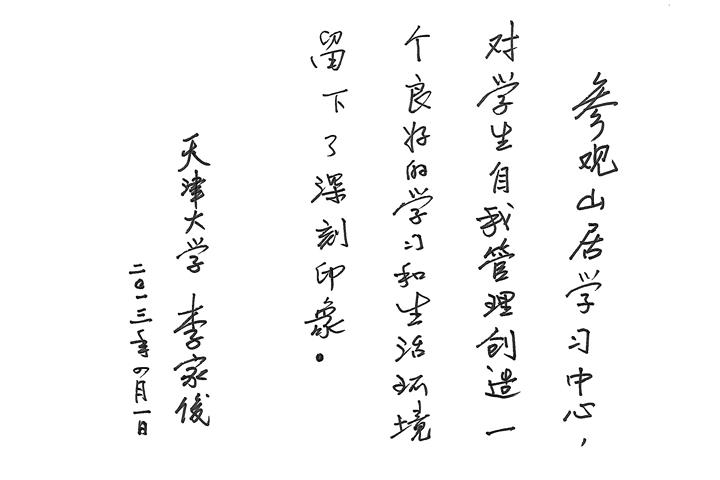 参观山居学习中心，
对学生自我管理创造一
个良好的学习和生活环境
留下了深刻印象。
天津大学 李家俊
二〇一三年四月一日